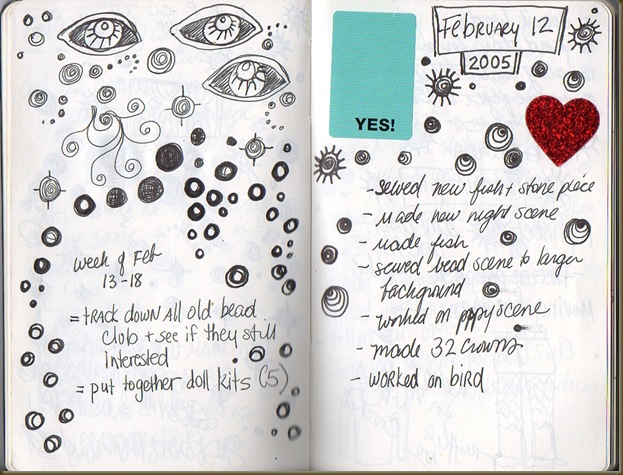 week of Feb
13-18
= track down all old bead
club + see if they still
interested
= put together doll kits (5)
February 12
2005
YES!
- sewed new fish + stone piece
- made new night scene
- made fish
- sewed bead scene to larger
background
- worked on poppy scene
- made 32 crowns
- worked on bird